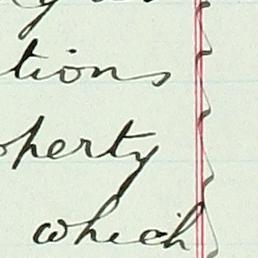 tions
perty
which